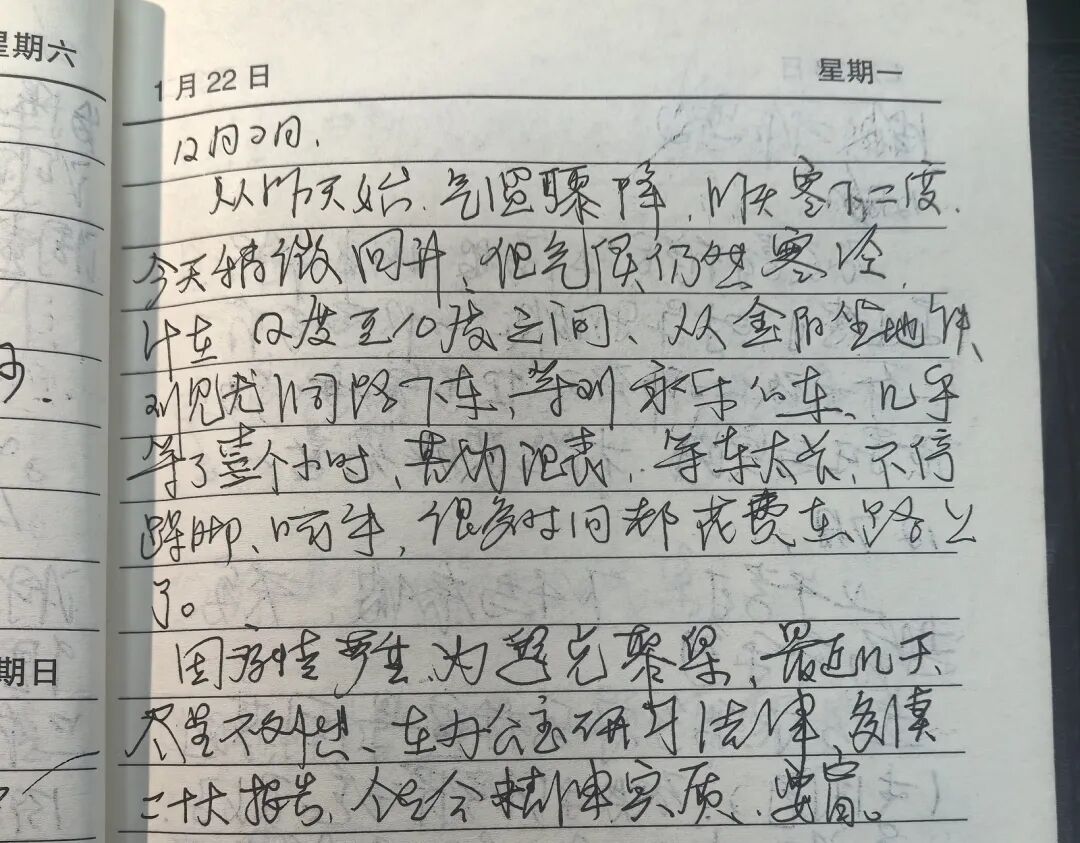 星期六
1月22日 星期一
12月2日.
从昨天始.气温骤降,昨天零下二度.
今天稍微回升、但气候仍然寒冷.
计在 2度至10度之间、从金阳坐地铁
到 路下车、等到 公车、几乎
等了 个小时, ,等车太长、不停
跺脚、呵手,很多时间都花费在路上
了。
因疫情 为避免聚集、最近几天
尽 不外 、在办公室研习法律、多读
二十大报告, 会精神实质、
期日